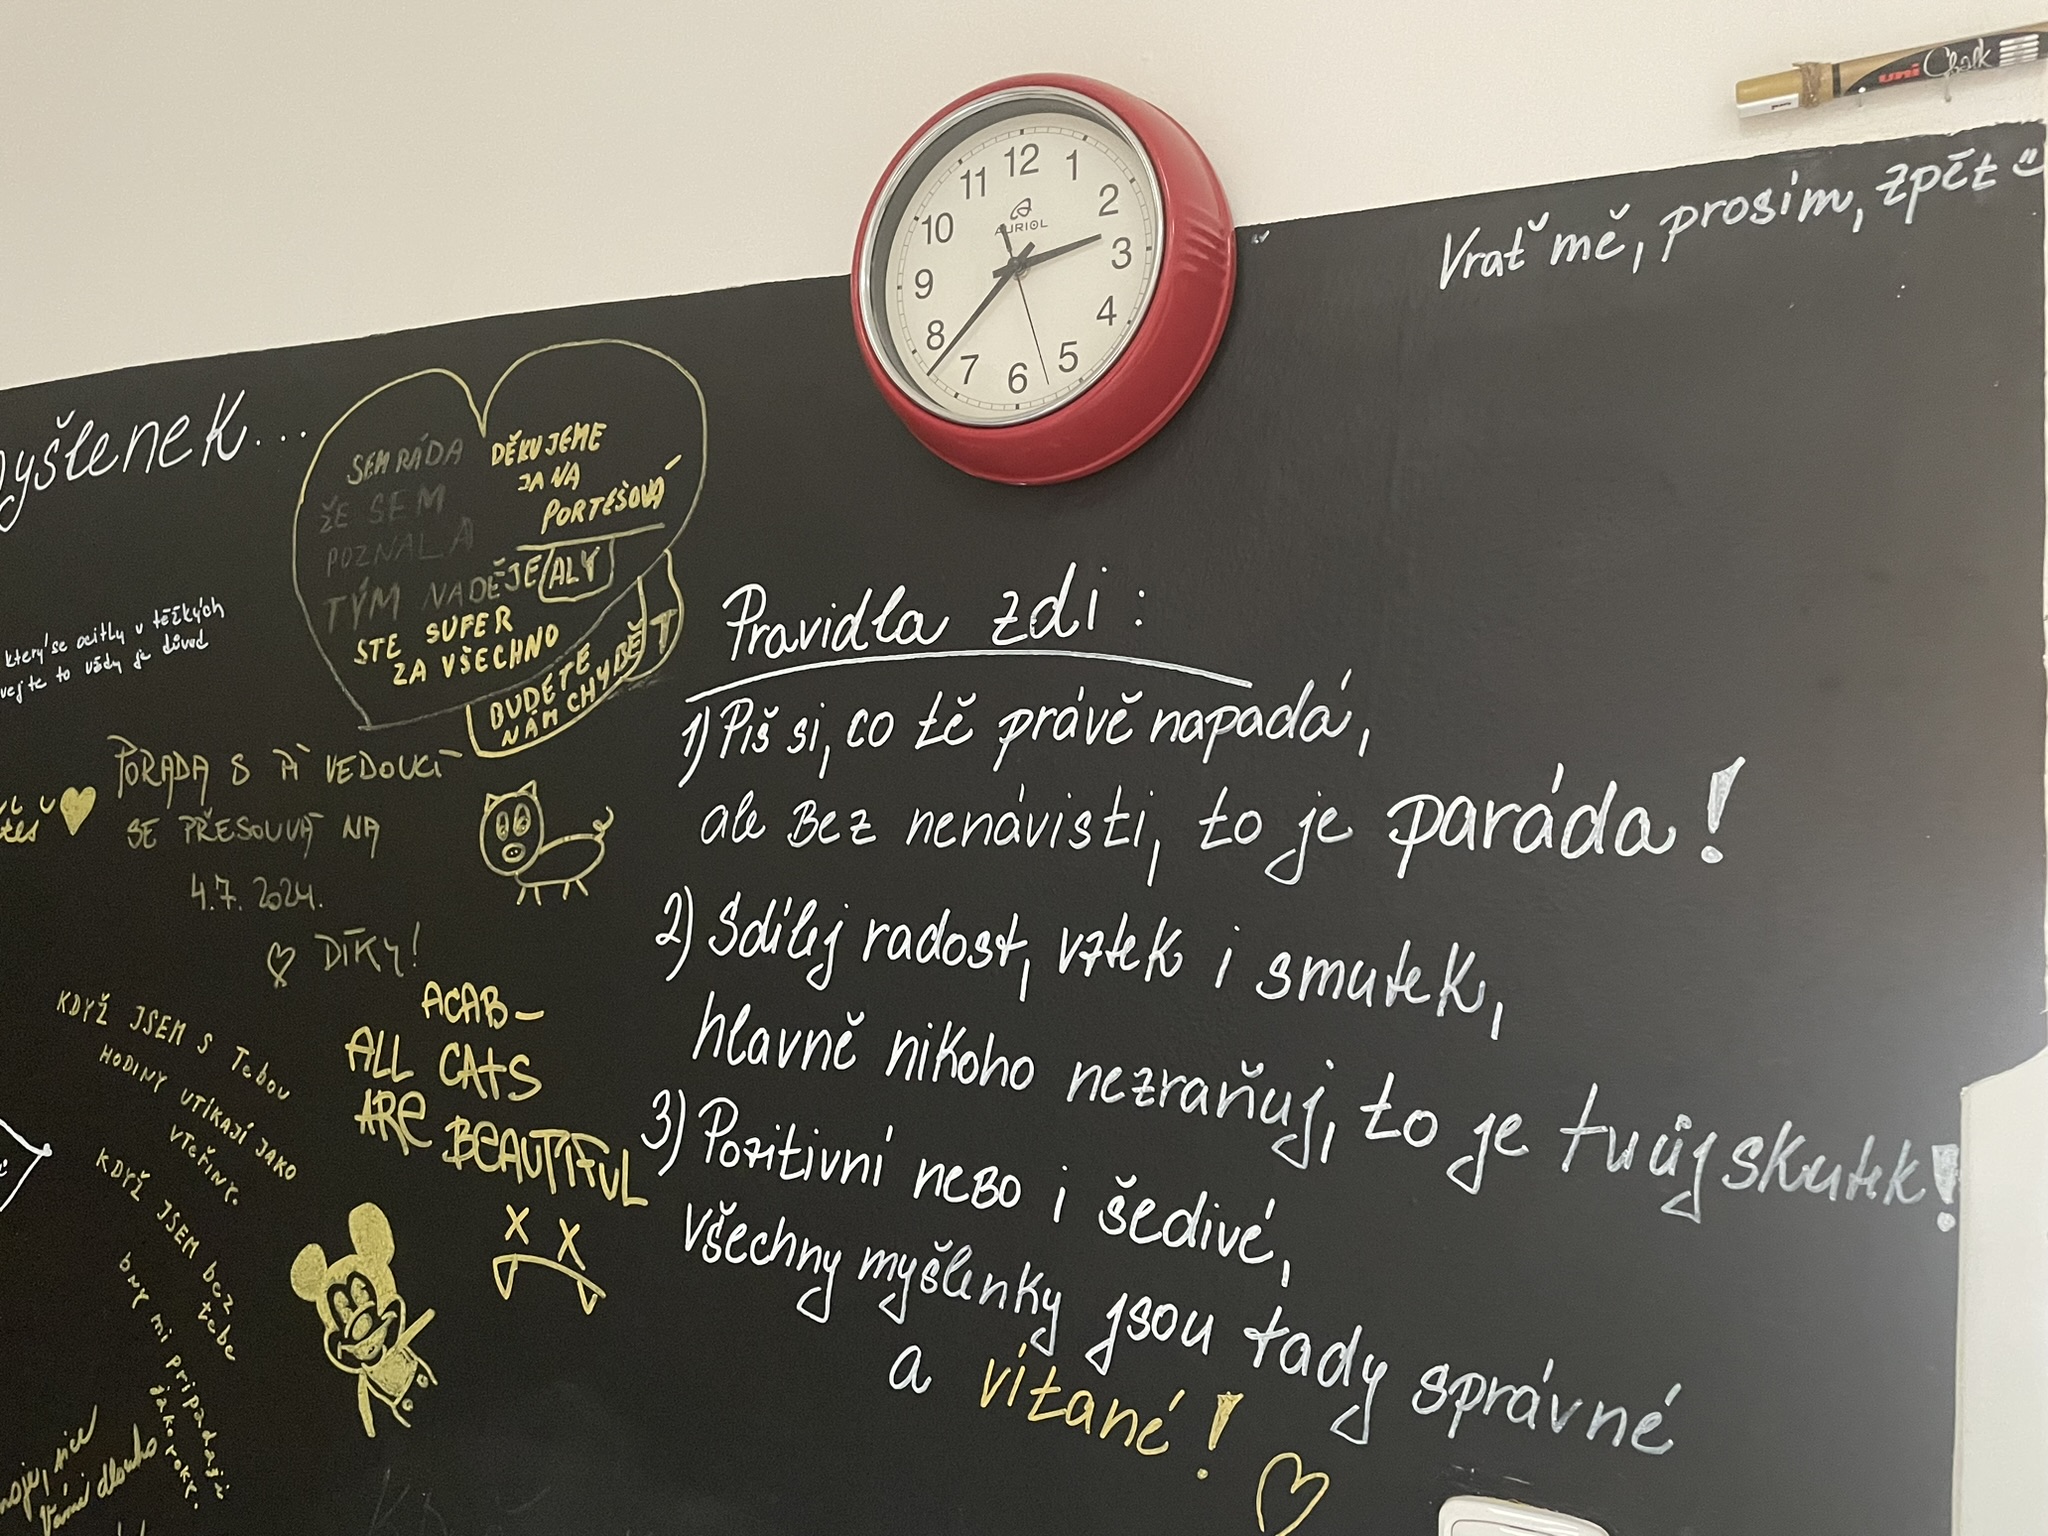 uni Chalk
Vrať mě, prosím, zpět
12
1
2
3
4
5
6
7
8
9
10
11
AURIOL
myšlenek...
SEM RÁDA
ŽE SEM
POZNALA
TÝM NADĚJE
STE SUPER
ZA VŠECHNO
DĚKUJEME
JANA
PORTEŠOVÁ
ALY
BUDETE
NÁM CHYBĚT
který se ocitly v těžkých
vejte to vždy je důvod
PORADA S PÍ VEDOUCÍ
SE PŘESOUVÁ NA
4.7. 2024.
DÍKY!
ACAB-
ALL CATS
ARE BEAUTIFUL
KDYŽ JSEM S Tebou
HODINY UTÍKAJÍ JAKO
VTEŘINY.
KDYŽ JSEM bez
tebe
DNY mi připadají
jako roky.
Vámi dlouho
Pravidla zdi:
1) Piš si, co tě právě napadá,
ale bez nenávisti, to je paráda!
2) Sdílej radost, vztek i smutek,
hlavně nikoho nezraňuj, to je tvůj skutek!
3) Pozitivní nebo i šedivé,
všechny myšlenky jsou tady správné
a vítané!